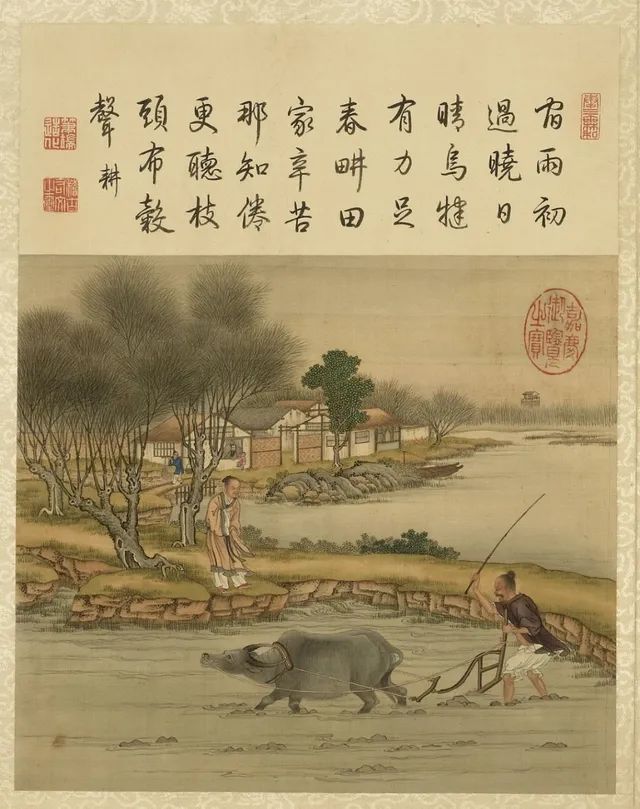 宵雨初
過曉日
晴烏犍
有力足
春畊田
家辛苦
那知倦
更聽枝
頭布穀
聲 耕
嘉慶
御覽
之寶